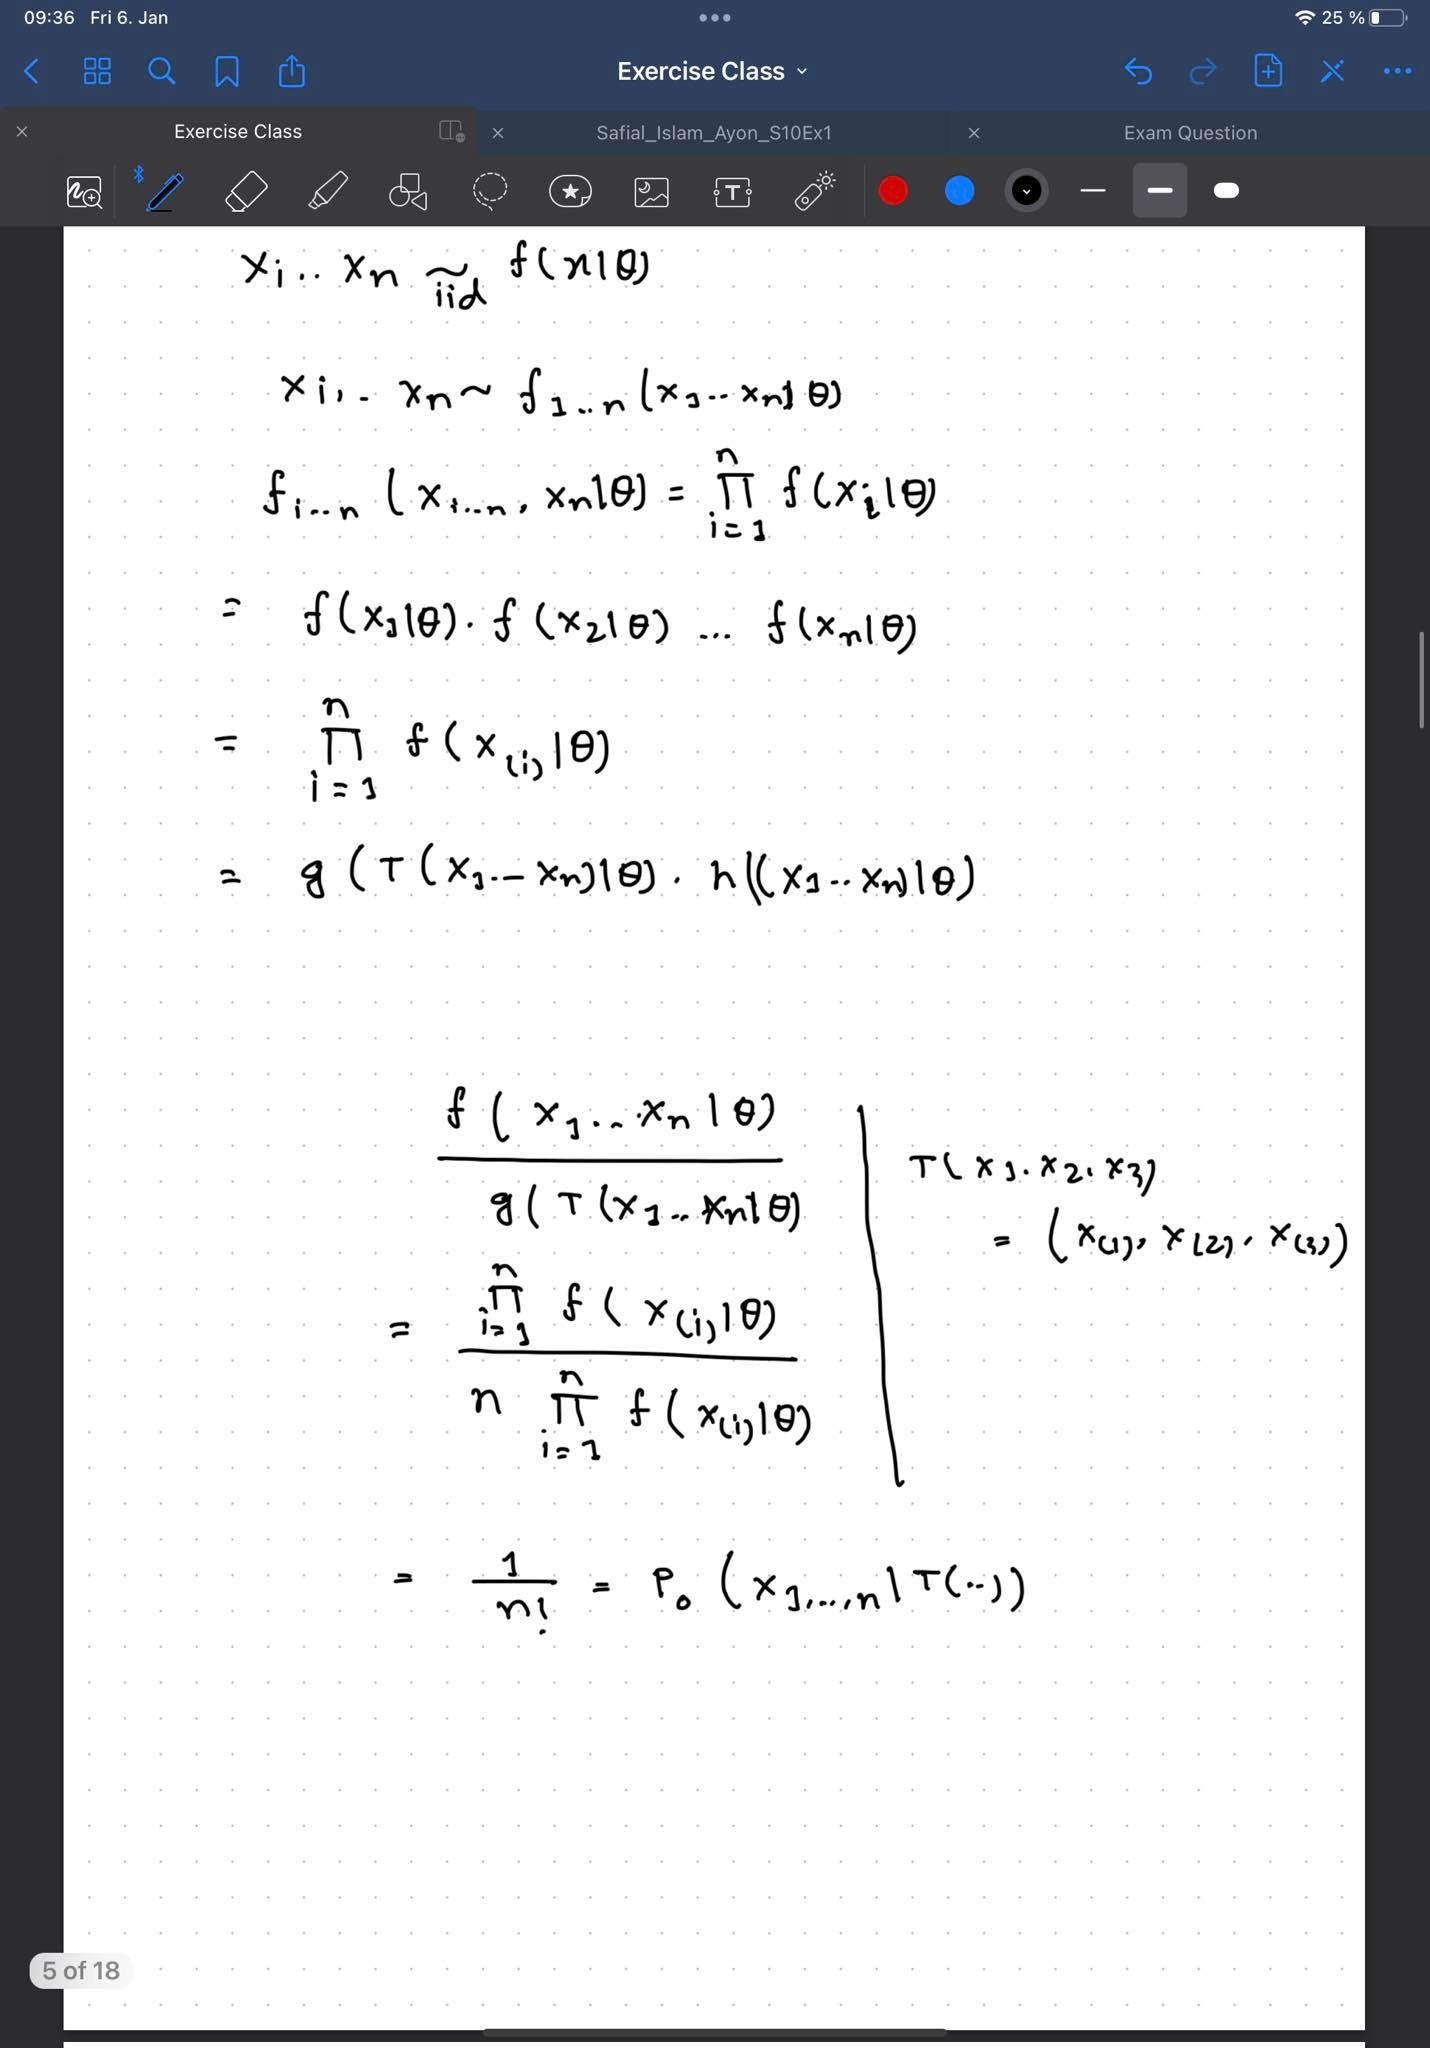 09:36 Fri 6. Jan
25 %
Exercise Class
Exercise Class
Safial_Islam_Ayon_S10Ex1
Exam Question
x_i .. x_n ~_{iid} f(x|θ)
x_i, .. x_n ~ f_{1..n} (x_1 .. x_n | θ)
f_{i...n} (x_{i...n}, x_n|θ) = ∏_{i=1}^{n} f(x_i|θ)
= f(x_1|θ) . f(x_2|θ) ... f(x_n|θ)
= ∏_{i=1}^{n} f(x_{(i)}|θ)
= g(T(x_1 .. x_n)|θ) . h((x_1 .. x_n)|θ)
f(x_1 ... x_n | θ)
g(T(x_1 .. x_n|θ)
= ∏_{i=1}^{n} f(x_{(i)}|θ)
n ∏_{i=1}^{n} f(x_{(i)}|θ)
T(x_1, x_2, x_3)
= (x_{(1)}, x_{(2)}, x_{(3)})
= 1/n! = P_0 (x_{1,...,n} | T(..))
5 of 18